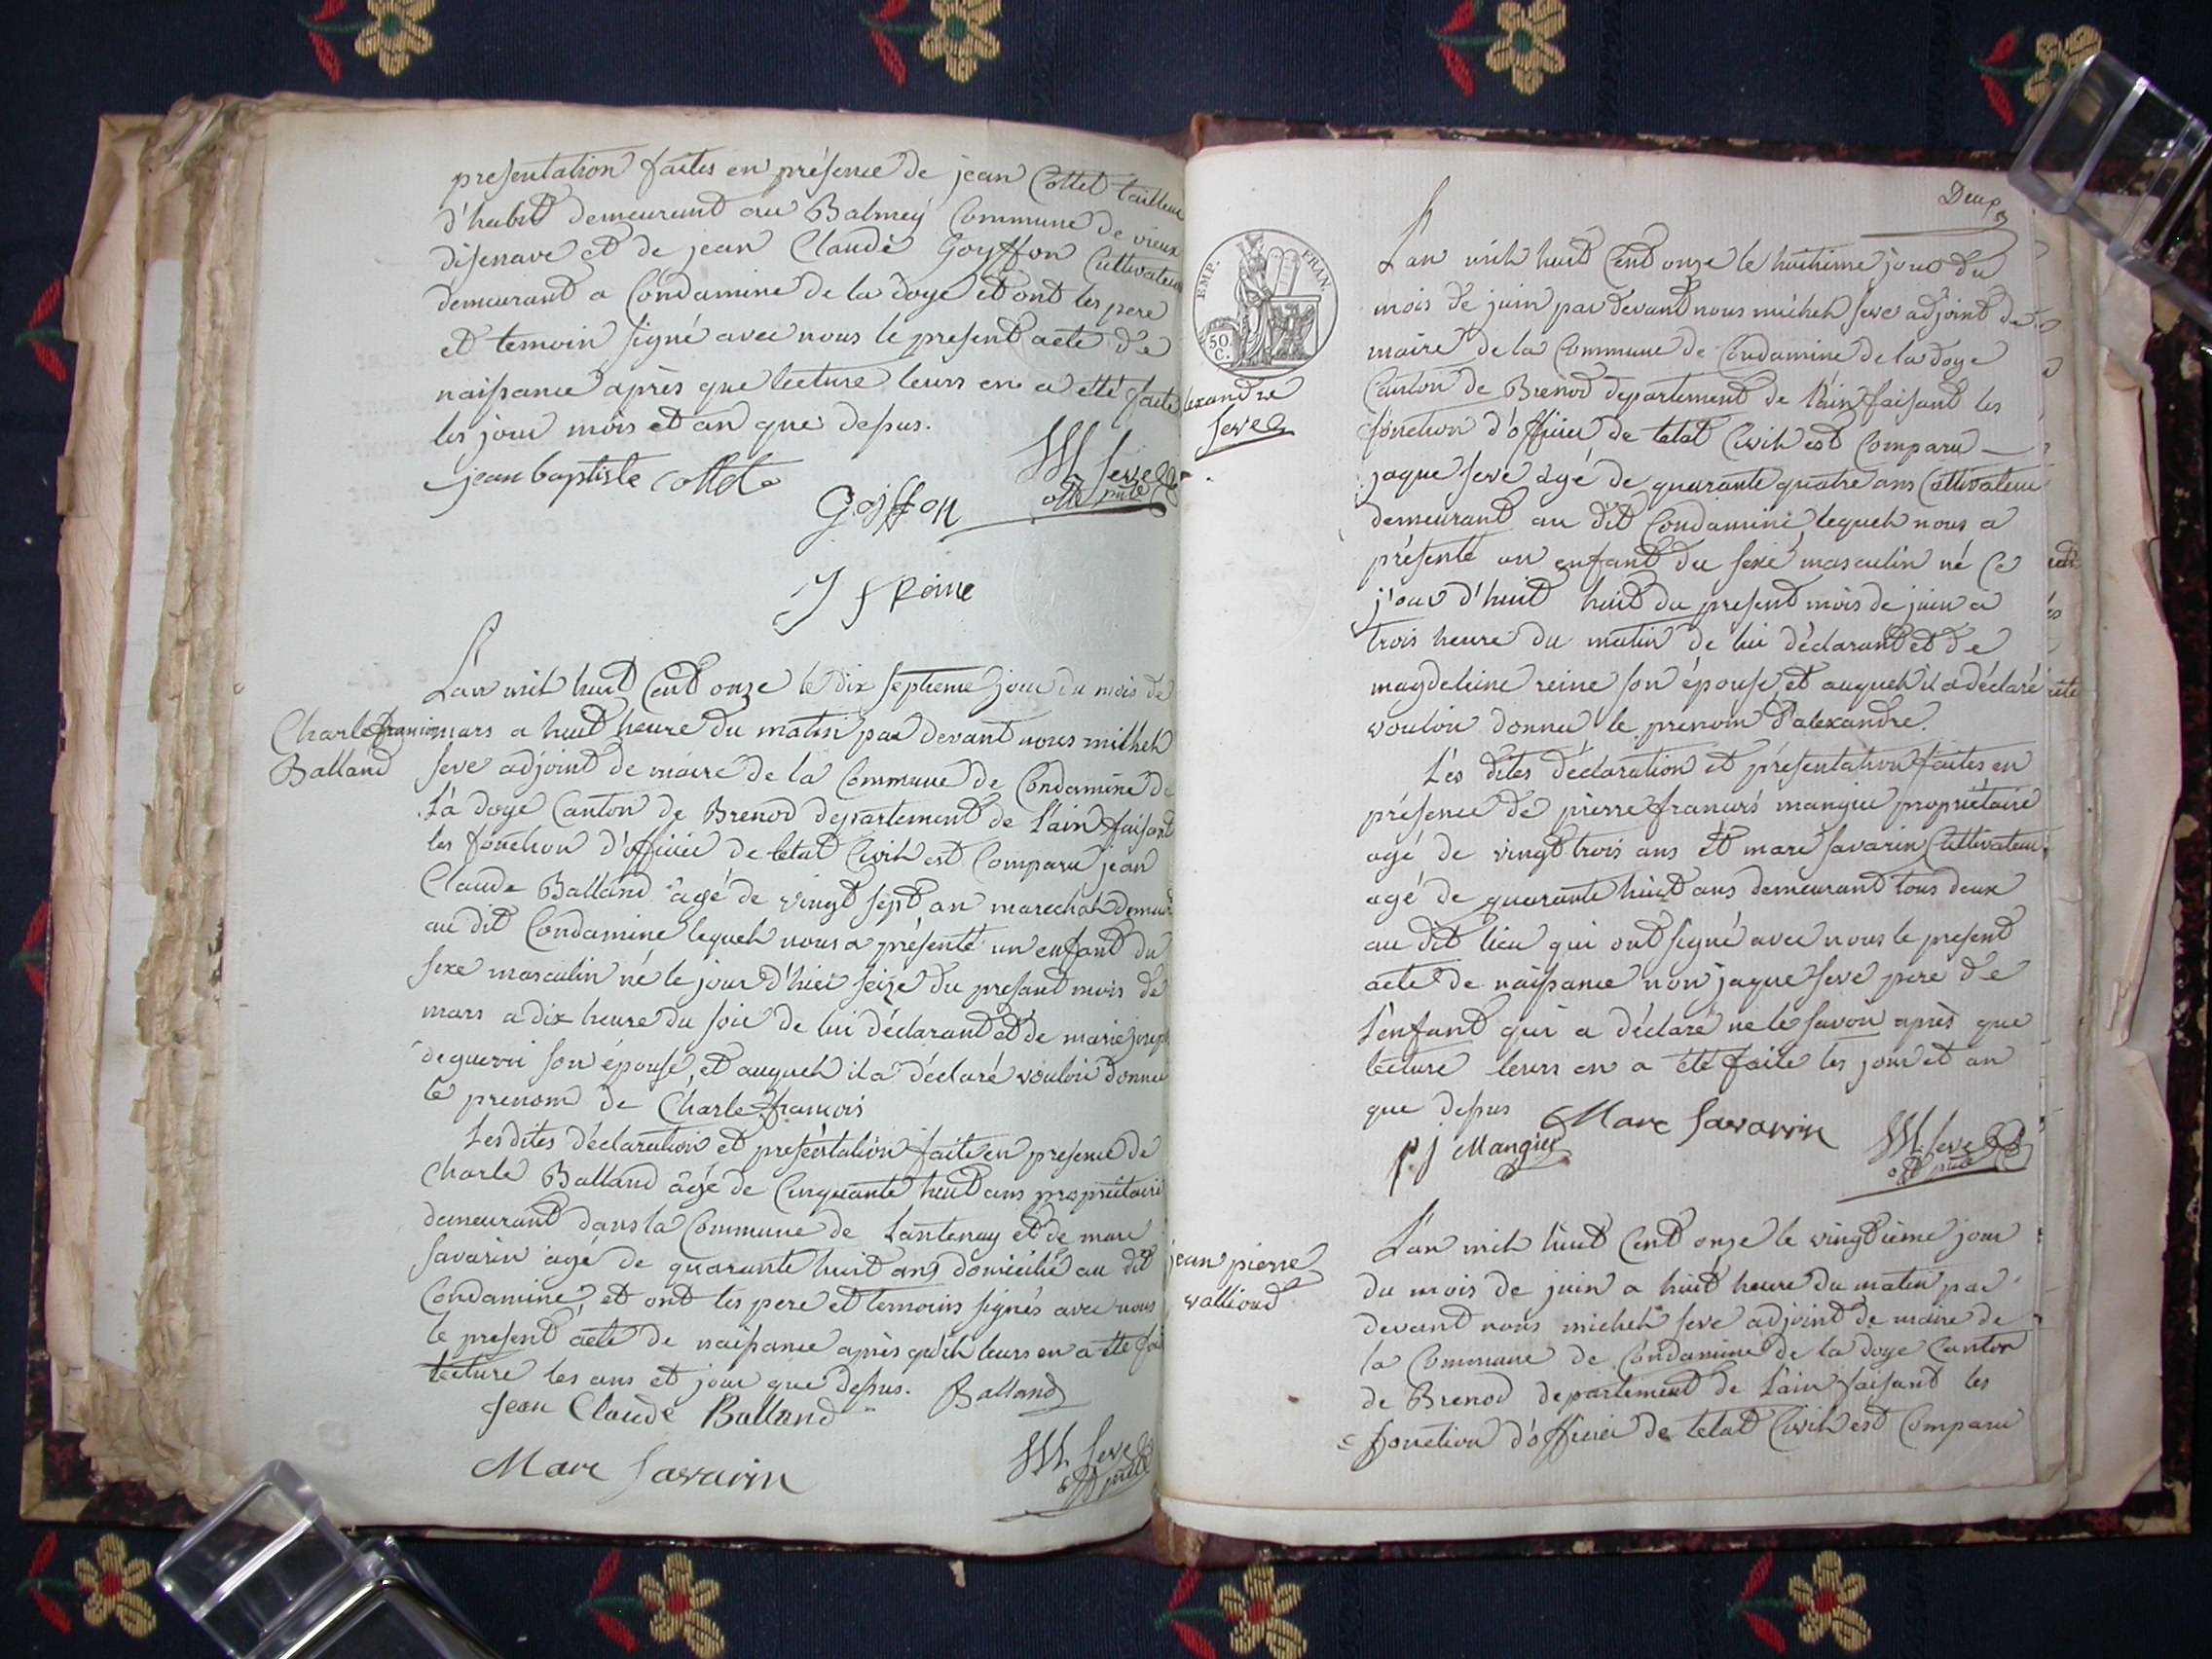 presentation faites en présence de jean Collet tailleur
d'habit demeurant au Balmey Commune de vieux
disenave et de jean Claude Goyffon Cultivateur
demeurant a Condamine de la doye et ont les pere
et temoin signé avec nous le present acte de
naissance après que lecture leurs en a été faite
les jour mois et an que dessus.
jean baptiste collet
Goiffon
M Seve
J f Reine
L'an mil huit Cent onze le dix septieme jour du mois de
Charle françois
Balland
mars a huit heure du matin par devant nous michel
seve adjoint de maire de la Commune de Condamine de
la doye Canton de Brenod departement de l'ain faisant
les fonction d'officier de letat Civil est Comparu jean
Claude Balland âgé de vingt sept an marechal demeur
au dit Condamine lequel nous a présenté un enfant du
sexe masculin né le jour d'hier seize du presant mois de
mars a dix heure du soir de lui déclarant et de marie joseph
deguerri son épouse, et auquel il a déclaré vouloir donner
le prenom de Charle françois
Les dites déclaration et presentation faite en presence de
Charle Balland âgé de Cinquante huit ans propriétaire
demeurant dans la Commune de Lantenay et de marc
savarin agé de quarante huit ans domicilié au dit
Condamine, et ont les pere et temoins signés avec nous
le present acte de naissance après qu'il leurs en a été fai
lecture les ans et jour que dessus. Balland
Jean Claude Balland
Marc Savarin
M. Seve
Deux
EMP. FRAN.
50 C.
lexandre
Seve
L'an mil huit Cent onze le huitieme jour du
mois de juin par devant nous michel seve adjoint de
maire de la Commune de Condamine de la doye
Canton de Brenod departement de l'ain faisant les
fonction d'officier de letat Civil est Comparu
jaque seve agé de quarante quatre ans Cultivateur
demeurant au dit Condamine lequel nous a
présenté un enfant du sexe masculin né Ce
jour d'huit huit du present mois de juin a
trois heure du matin de lui déclarant et de
magdeleine reine son épouse, et auquel il a déclaré
vouloir donner le prenom d'alexandre.
Les dites déclaration et présentation faites en
présence de pierre francois mangier propriétaire
agé de vingt trois ans et marc savarin Cultivateur
agé de quarante huit ans demeurant tous deux
au dit lieu qui ont signé avec nous le present
acte de naissance non jaque seve pere de
L'enfant qui a déclaré ne le savoir après que
lecture leurs en a été faite les jour et an
que dessus
Marc Savarin
p. f Mangier
M. Seve
jean pierre
vallioud
L'an mil huit Cent onze le vingtieme jour
du mois de juin a huit heure du matin par
devant nous michel seve adjoint de maire de
la Commune de Condamine de la doye Canton
de Brenod departement de L'ain faisant les
fonction d'officier de letat Civil est Comparu